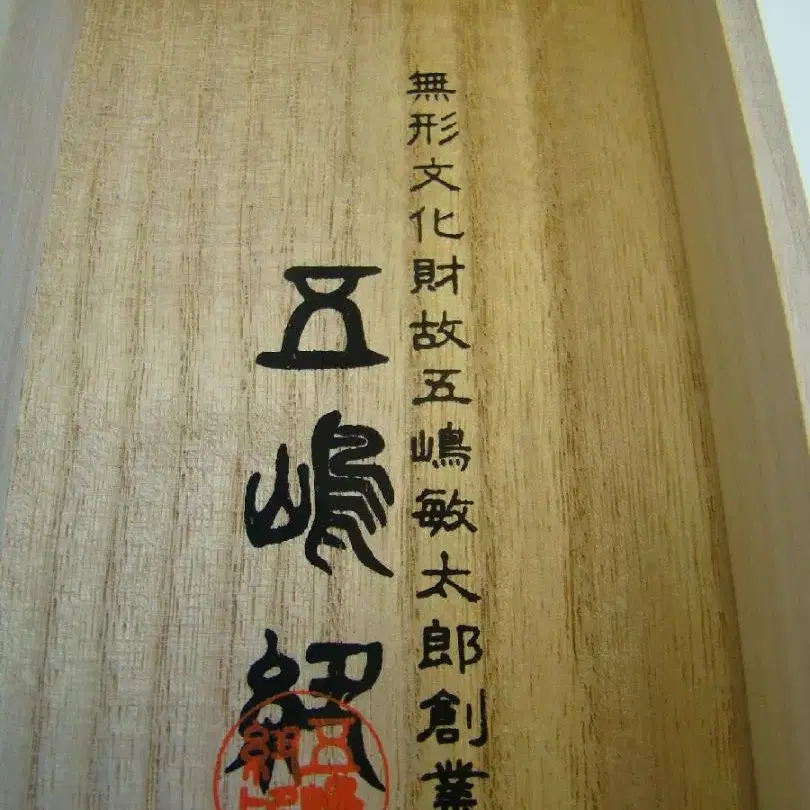 無形文化財故五嶋敏太郎創業
五嶋紐
五嶋紐